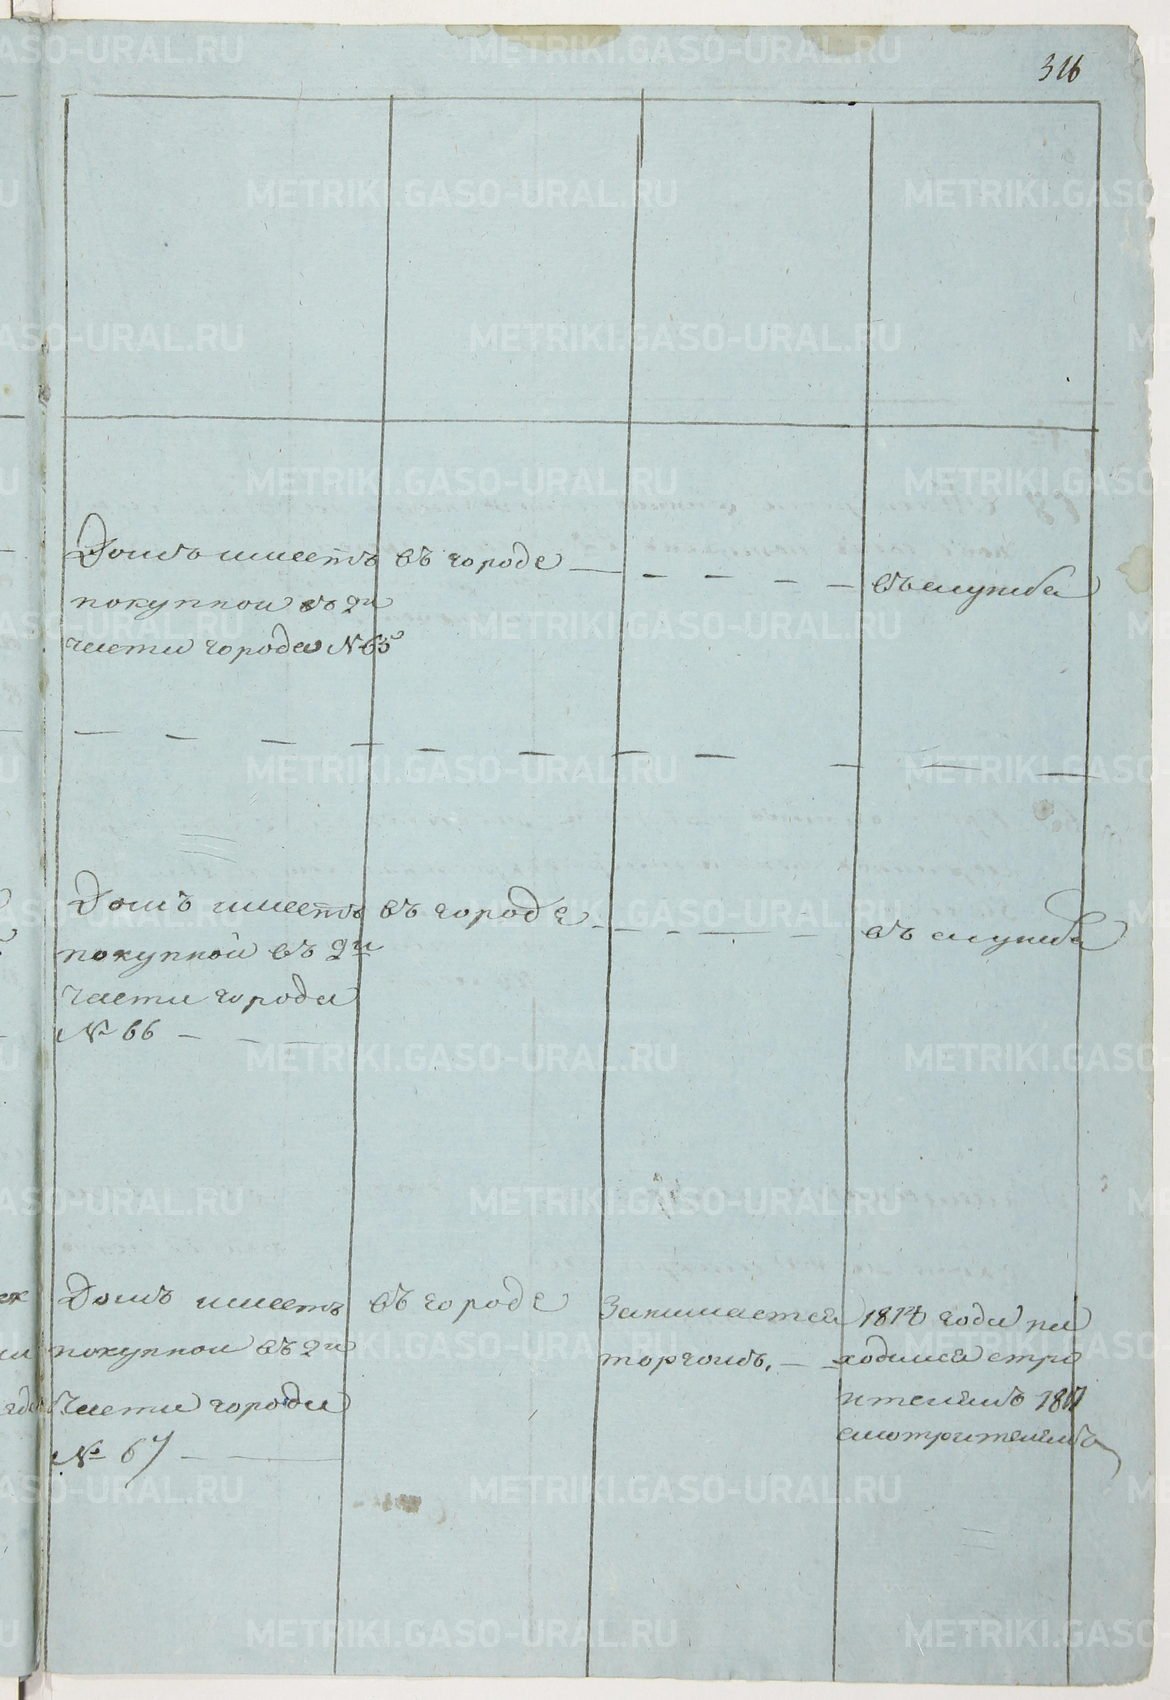 316
Домъ имеетъ въ городе — — — — — въ службе
покупной въ 2й
части города № 65
— — — — — — — — — — —
Домъ имеетъ въ городе — — — — въ службе
покупной въ 2й
части города
№ 66 — — —
Домъ имеетъ въ городе Занимается 1814 года на
покупной въ 2й торгомъ. — — ходился стро
части города ителемъ 1817
№ 67 — — смотрителемъ
METRIKI.GASO-URAL.RU